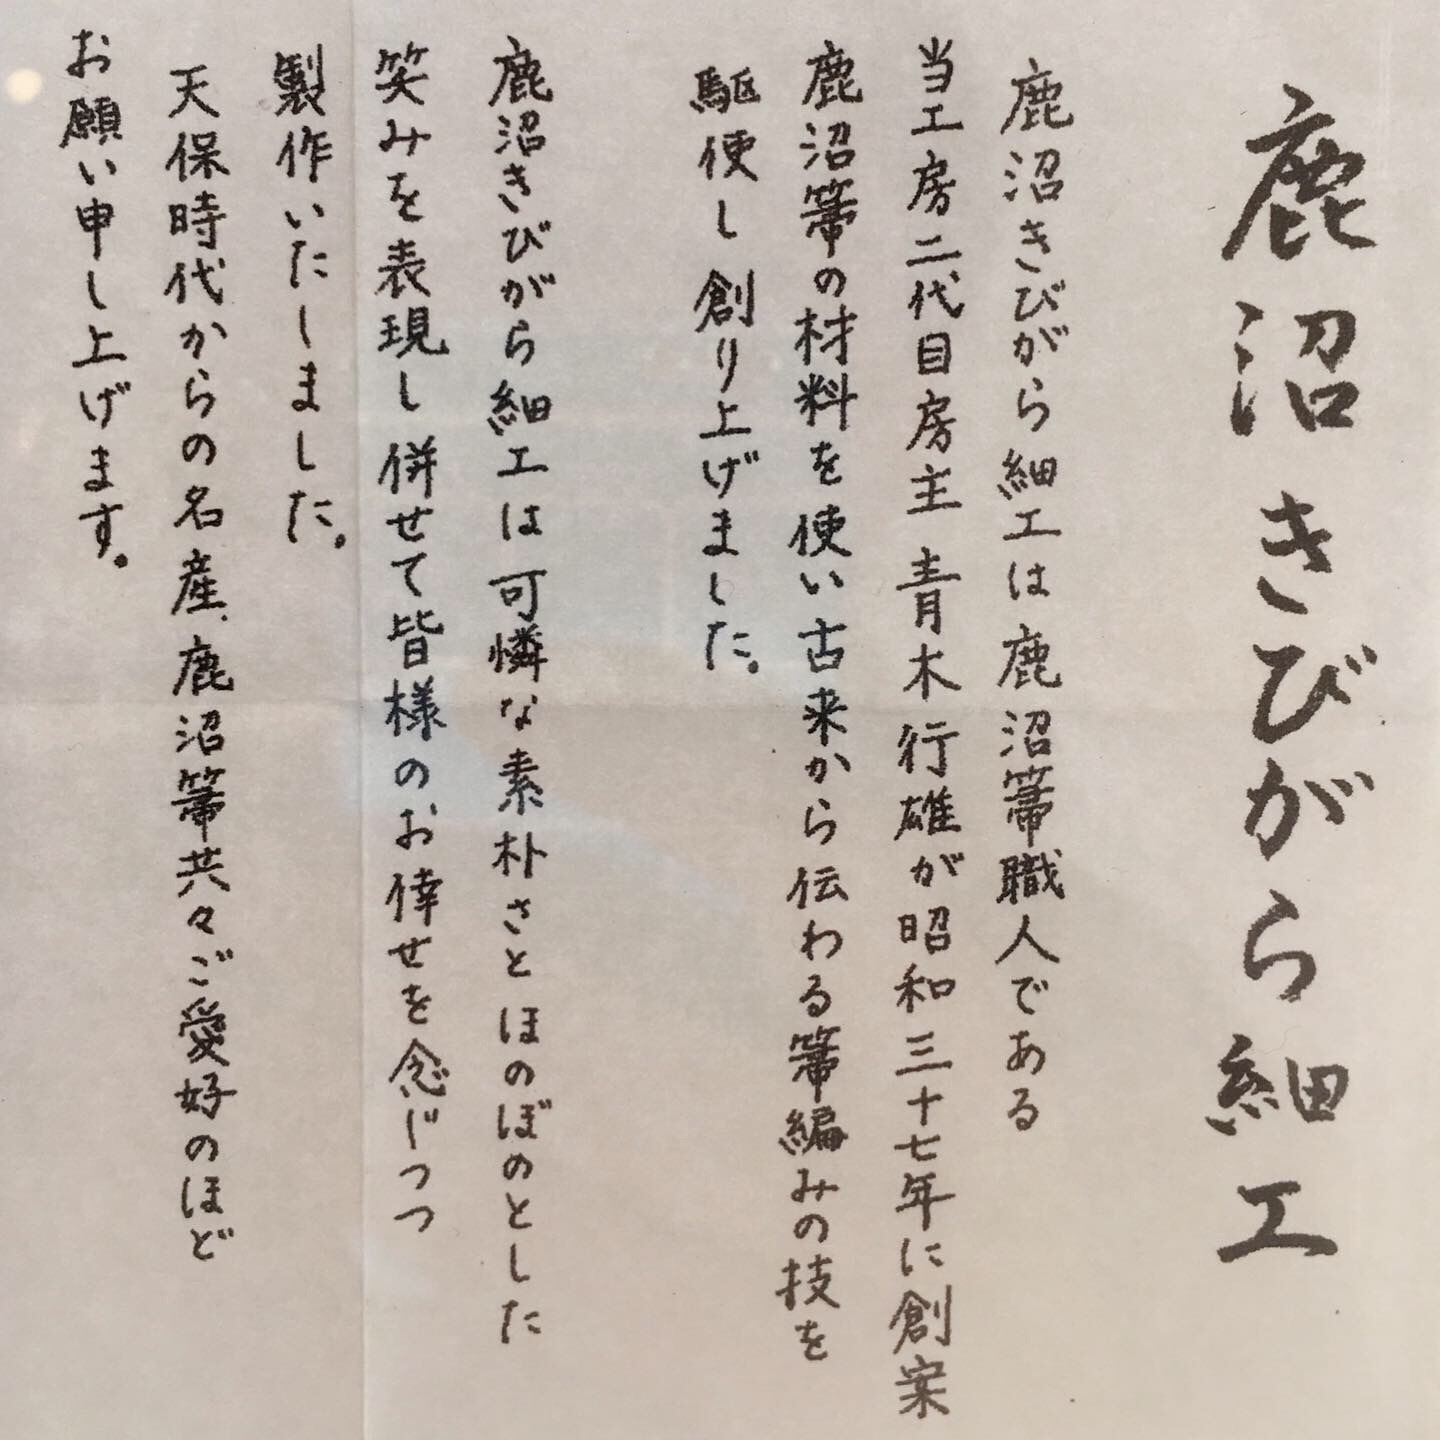 鹿沼きびがら細工
鹿沼きびがら細工は鹿沼箒職人である
当工房二代目房主 青木行雄が昭和三十七年に創案
鹿沼箒の材料を使い古来から伝わる箒編みの技を
駆使し創り上げました。
鹿沼きびがら細工は可憐な素朴さとほのぼのとした
笑みを表現し併せて皆様のお倖せを念じつつ
製作いたしました。
天保時代からの名産、鹿沼箒共々ご愛好のほど
お願い申し上げます。